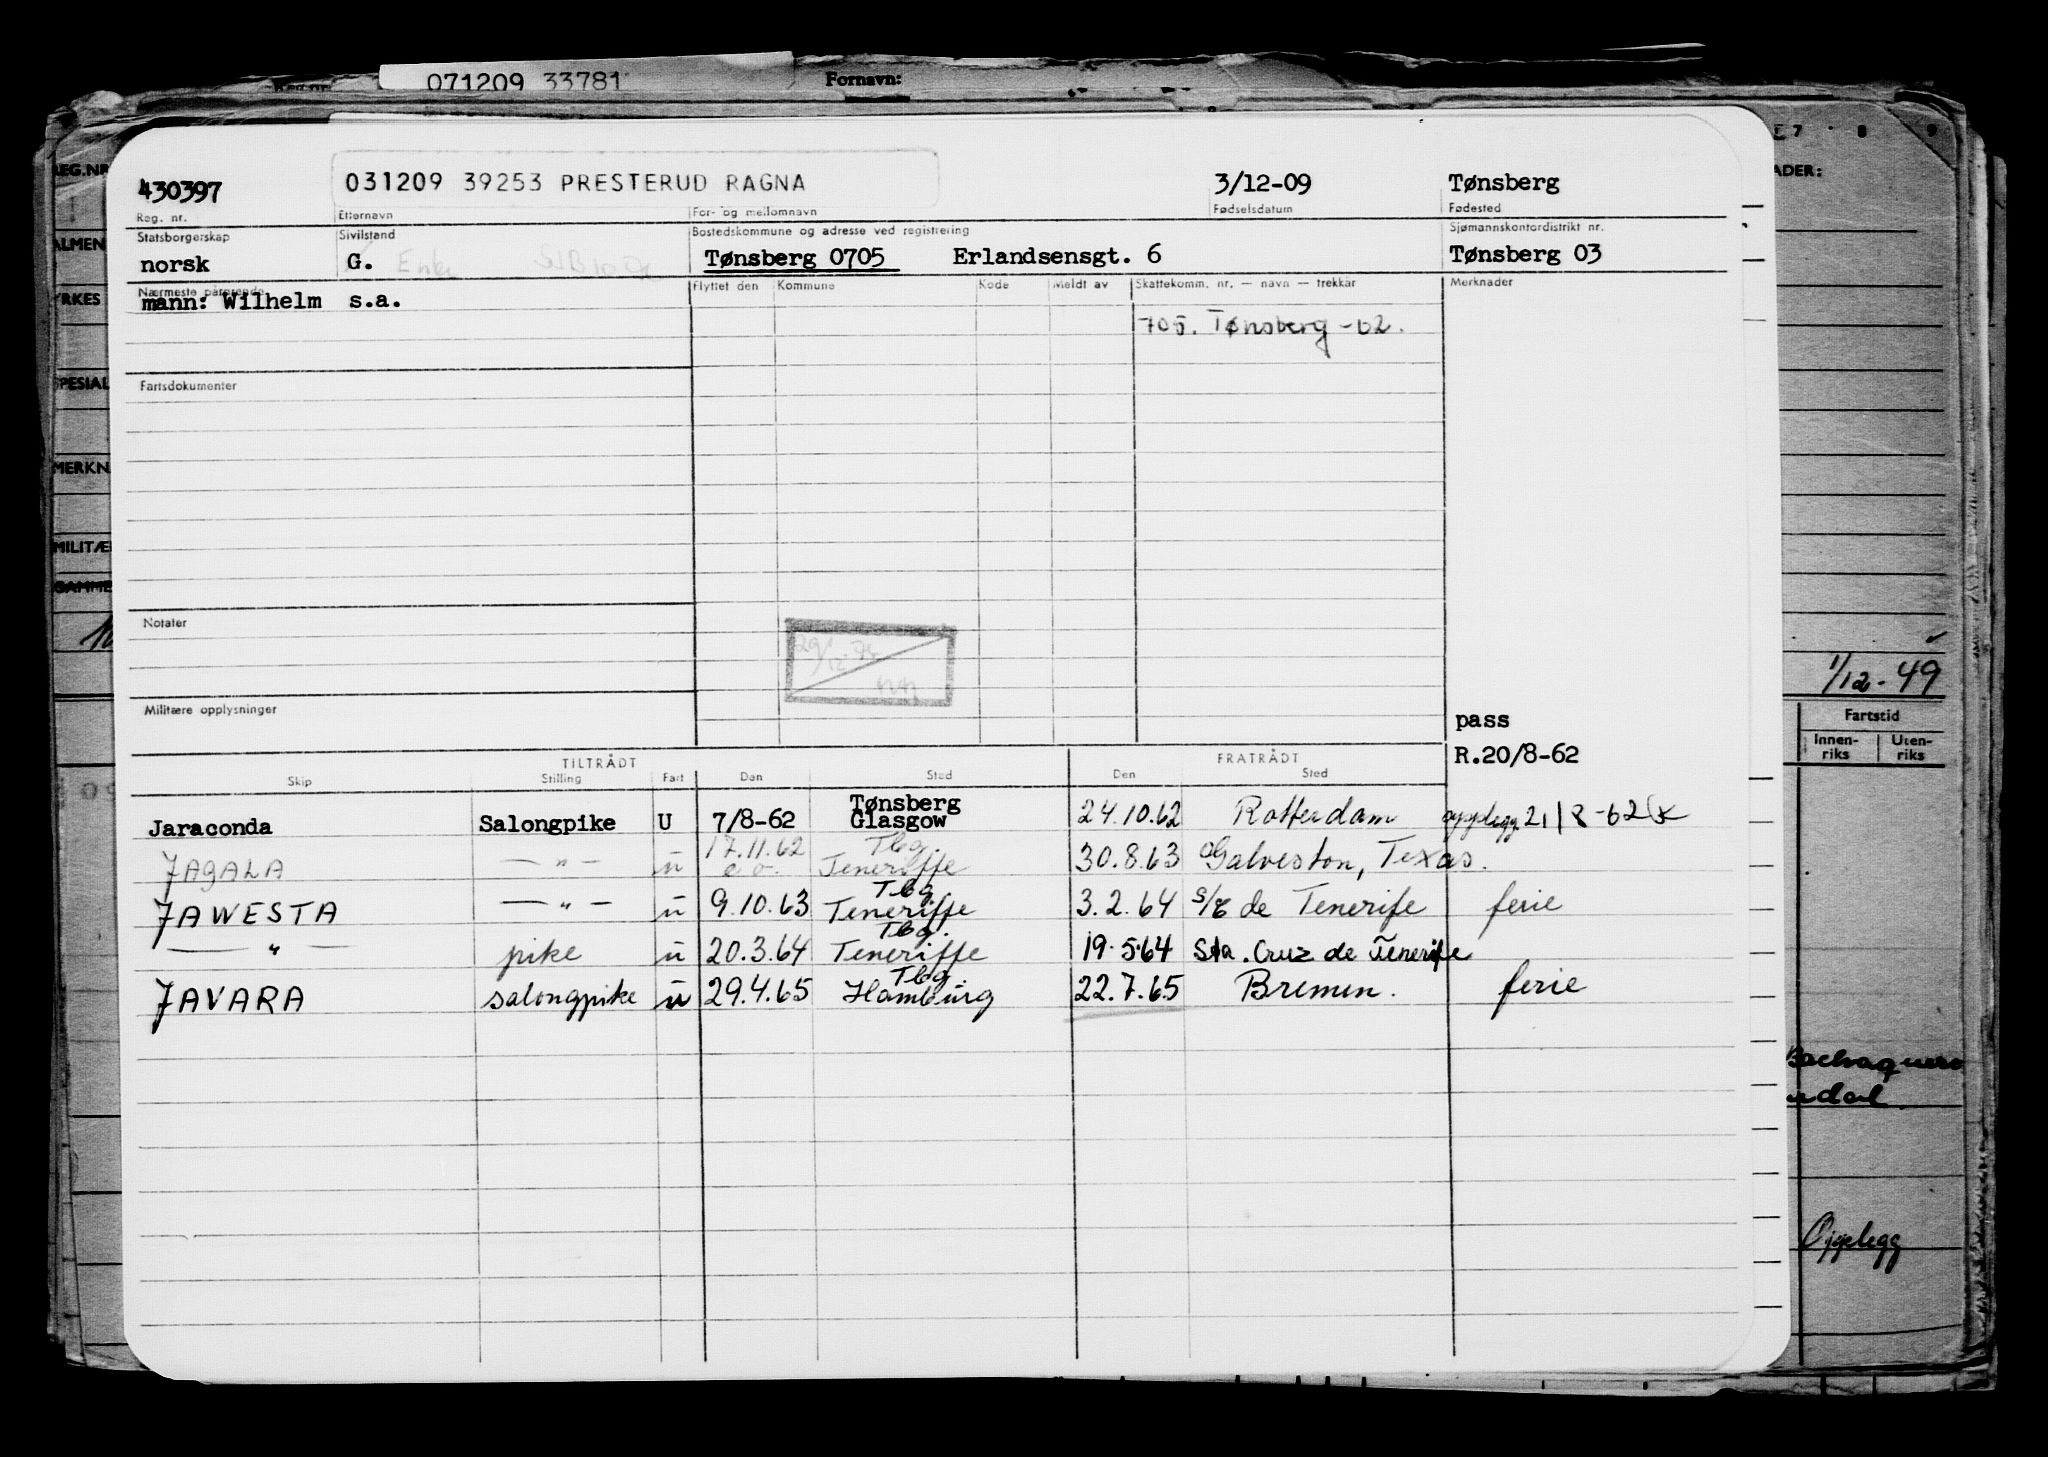 071209 33781 Fornavn:
7 8 9
EG.NR ADER:
430397 031209 39253 PRESTERUD RAGNA 3/12-09 Tønsberg
Reg. nr. Etternavn For- og mellomnavn Fødselsdatum Fødested
Statsborgerskap Sivilstand Bostedskommune og adresse ved registrering Sjømannskontordistrikt nr.
ALMEN
norsk G. Enke Tønsberg 0705 Erlandsensgt. 6 Tønsberg 03
Nærmeste pårørende Flyttet den Kommune Kode Meldt av Skattekomm. nr. — navn — trekkår Merknader
YRKES
mann: Wilhelm s.a.
705. Tønsberg -62.
SPESIAL
Fartsdokumenter
MERKN
MILITÆ
GAMME
Notater
29/12-76
1/12-49
Militære opplysninger
pass
R.20/8-62
Fartstid
Innen-riks Uten-riks
TILTRÅDT FRATRÅDT
Skip Stilling Fart Den Sted Den Sted
Jaraconda Salongpike U 7/8-62 Tønsberg Glasgow 24.10.62 Rotterdam opplegg. 21/8-62
JAGALA — " — u 17.11.62 e.o. Tbg. Teneriffe 30.8.63 Galveston, Texas.
JAWESTA — " — u 9.10.63 Tbg. Teneriffe 3.2.64 S/C de Tenerife ferie
— " — pike u 20.3.64 Tbg. Teneriffe 19.5.64 Sta. Cruz de Tenerife
JAVARA salongpike u 29.4.65 Tbg. Hamburg 22.7.65 Bremen. ferie
Bachaquero
Opplegg